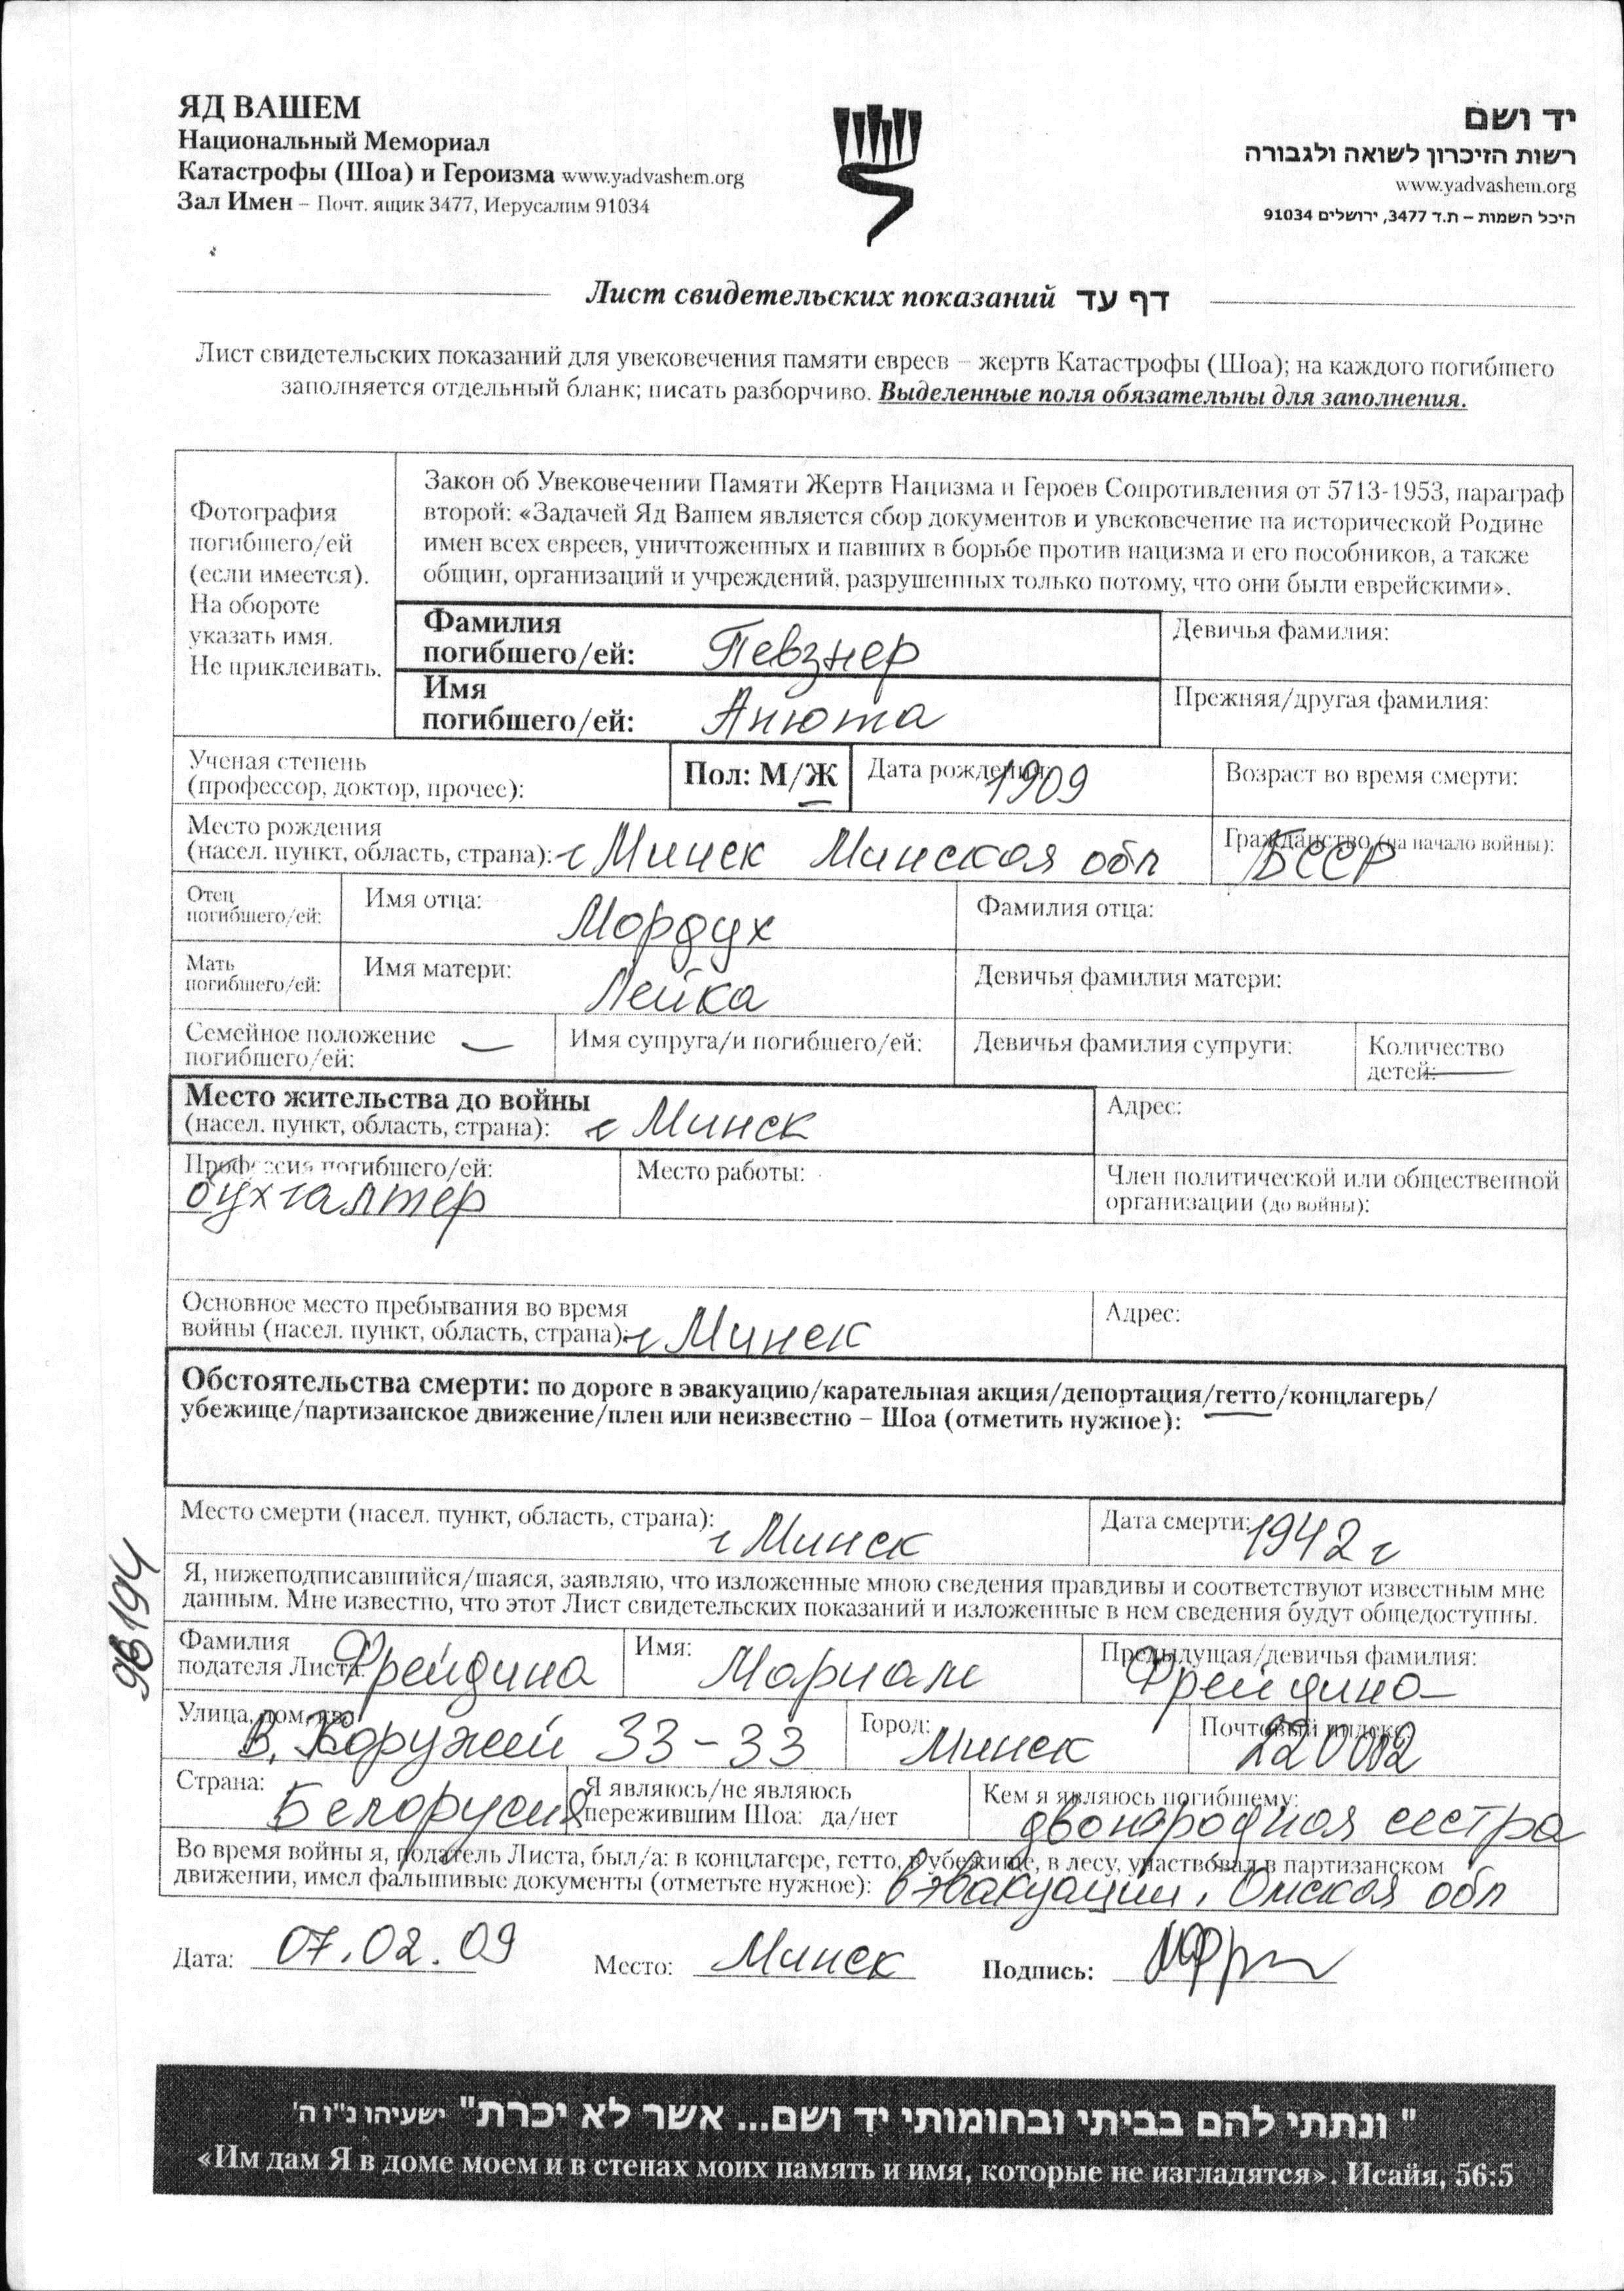 ЯД ВАШЕМ
Национальный Мемориал
Катастрофы (Шоа) и Героизма www.yadvashem.org
Зал Имен – Почт. ящик 3477, Иерусалим 91034
יד ושם
רשות הזיכרון לשואה ולגבורה
www.yadvashem.org
היכל השמות – ת.ד 3477, ירושלים 91034
Лист свидетельских показаний דף עד
Лист свидетельских показаний для увековечения памяти евреев – жертв Катастрофы (Шоа); на каждого погибшего
заполняется отдельный бланк; писать разборчиво. Выделенные поля обязательны для заполнения.
Фотография
погибшего/ей
(если имеется).
На обороте
указать имя.
Не приклеивать.
Закон об Увековечении Памяти Жертв Нацизма и Героев Сопротивления от 5713-1953, параграф
второй: «Задачей Яд Вашем является сбор документов и увековечение на исторической Родине
имен всех евреев, уничтоженных и павших в борьбе против нацизма и его пособников, а также
общин, организаций и учреждений, разрушенных только потому, что они были еврейскими».
Фамилия
погибшего/ей: Певзнер
Девичья фамилия:
Имя
погибшего/ей: Анюта
Прежняя/другая фамилия:
Ученая степень
(профессор, доктор, прочее):
Пол: М/Ж
Дата рождения: 1909
Возраст во время смерти:
Место рождения
(насел. пункт, область, страна): г Минск Минская обл
Гражданство (на начало войны):
БССР
Отец
погибшего/ей:
Имя отца: Мордух
Фамилия отца:
Мать
погибшего/ей:
Имя матери: Лейка
Девичья фамилия матери:
Семейное положение —
погибшего/ей:
Имя супруга/и погибшего/ей:
Девичья фамилия супруги:
Количество
детей: —
Место жительства до войны
(насел. пункт, область, страна): г Минск
Адрес:
Профессия погибшего/ей:
бухгалтер
Место работы:
Член политической или общественной
организации (до войны):
Основное место пребывания во время
войны (насел. пункт, область, страна): г Минск
Адрес:
Обстоятельства смерти: по дороге в эвакуацию/карательная акция/депортация/гетто/концлагерь/
убежище/партизанское движение/плен или неизвестно – Шоа (отметить нужное):
Место смерти (насел. пункт, область, страна): г Минск
Дата смерти: 1942 г
Я, нижеподписавшийся/шаяся, заявляю, что изложенные мною сведения правдивы и соответствуют известным мне
данным. Мне известно, что этот Лист свидетельских показаний и изложенные в нем сведения будут общедоступны.
Фамилия
подателя Листа: Фрейдина
Имя: Мариам
Предыдущая/девичья фамилия:
Фрейдина
Улица, дом, кв.:
В. Хоружей 33-33
Город: Минск
Почтовый индекс:
220002
Страна: Белорусия
Я являюсь/не являюсь
пережившим Шоа: да/нет
Кем я являюсь погибшему:
двоюродная сестра
Во время войны я, податель Листа, был/а: в концлагере, гетто, в убежище, в лесу, участвовал в партизанском
движении, имел фальшивые документы (отметьте нужное): в эвакуации, Омская обл
Дата: 07.02.09
Место: Минск
Подпись:
" ונתתי להם בביתי ובחומותי יד ושם... אשר לא יכרת" ישעיהו נ"ו ה'
«Им дам Я в доме моем и в стенах моих память и имя, которые не изгладятся». Исайя, 56:5